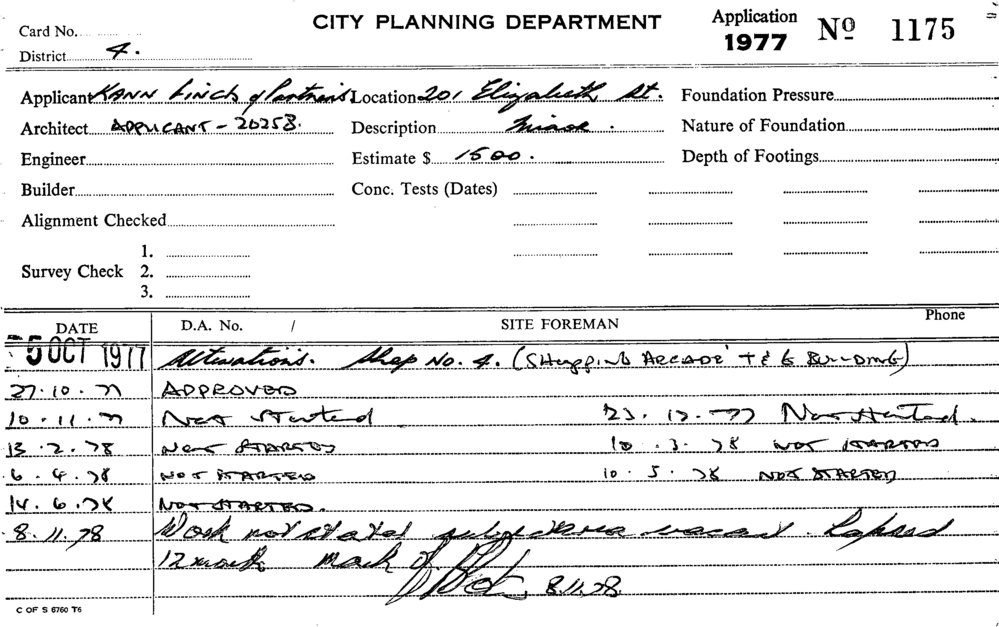 Card No. CITY PLANNING DEPARTMENT Application 1977 Nº 1175
District 4.
Applicant KANN FINCH & Partners Location 201 Elizabeth St. Foundation Pressure
Architect APPLICANT - 20258. Description Minor. Nature of Foundation
Engineer Estimate $ 1500. Depth of Footings
Builder Conc. Tests (Dates)
Alignment Checked
1.
Survey Check 2.
3.
DATE D.A. No. / SITE FOREMAN Phone
5 OCT 1977 Alterations. Shop No. 4. (SHOPPING ARCADE T & G BUILDING)
27.10.77 APPROVED
10.11.77 Not Started 23.12.77 Not Started.
13.2.78 NOT STARTED 10.3.78 NOT STARTED
6.4.78 NOT STARTED 10.5.78 NOT STARTED
14.6.78 NOT STARTED.
8.11.78 Work not started subject area vacant. Lapsed
12 month Mark off 8.11.78.
C OF S 6760 T6